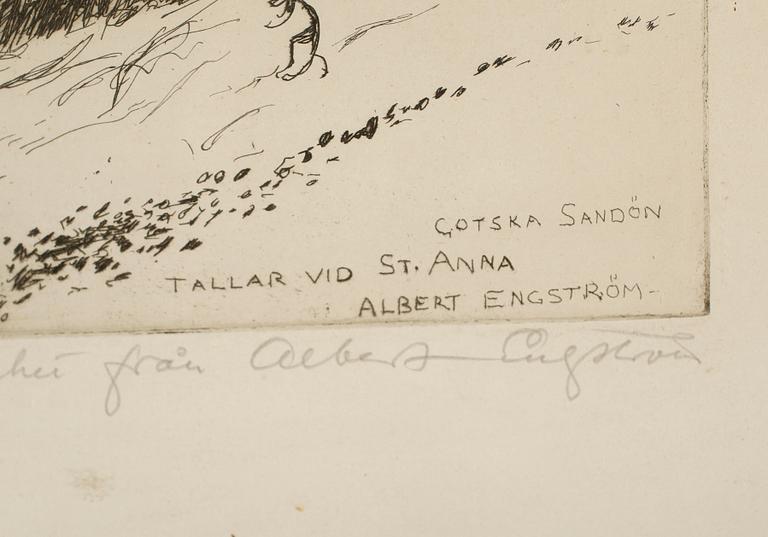 GOTSKA SANDÖN
TALLAR VID ST. ANNA
ALBERT ENGSTRÖM-
från Albert Engström